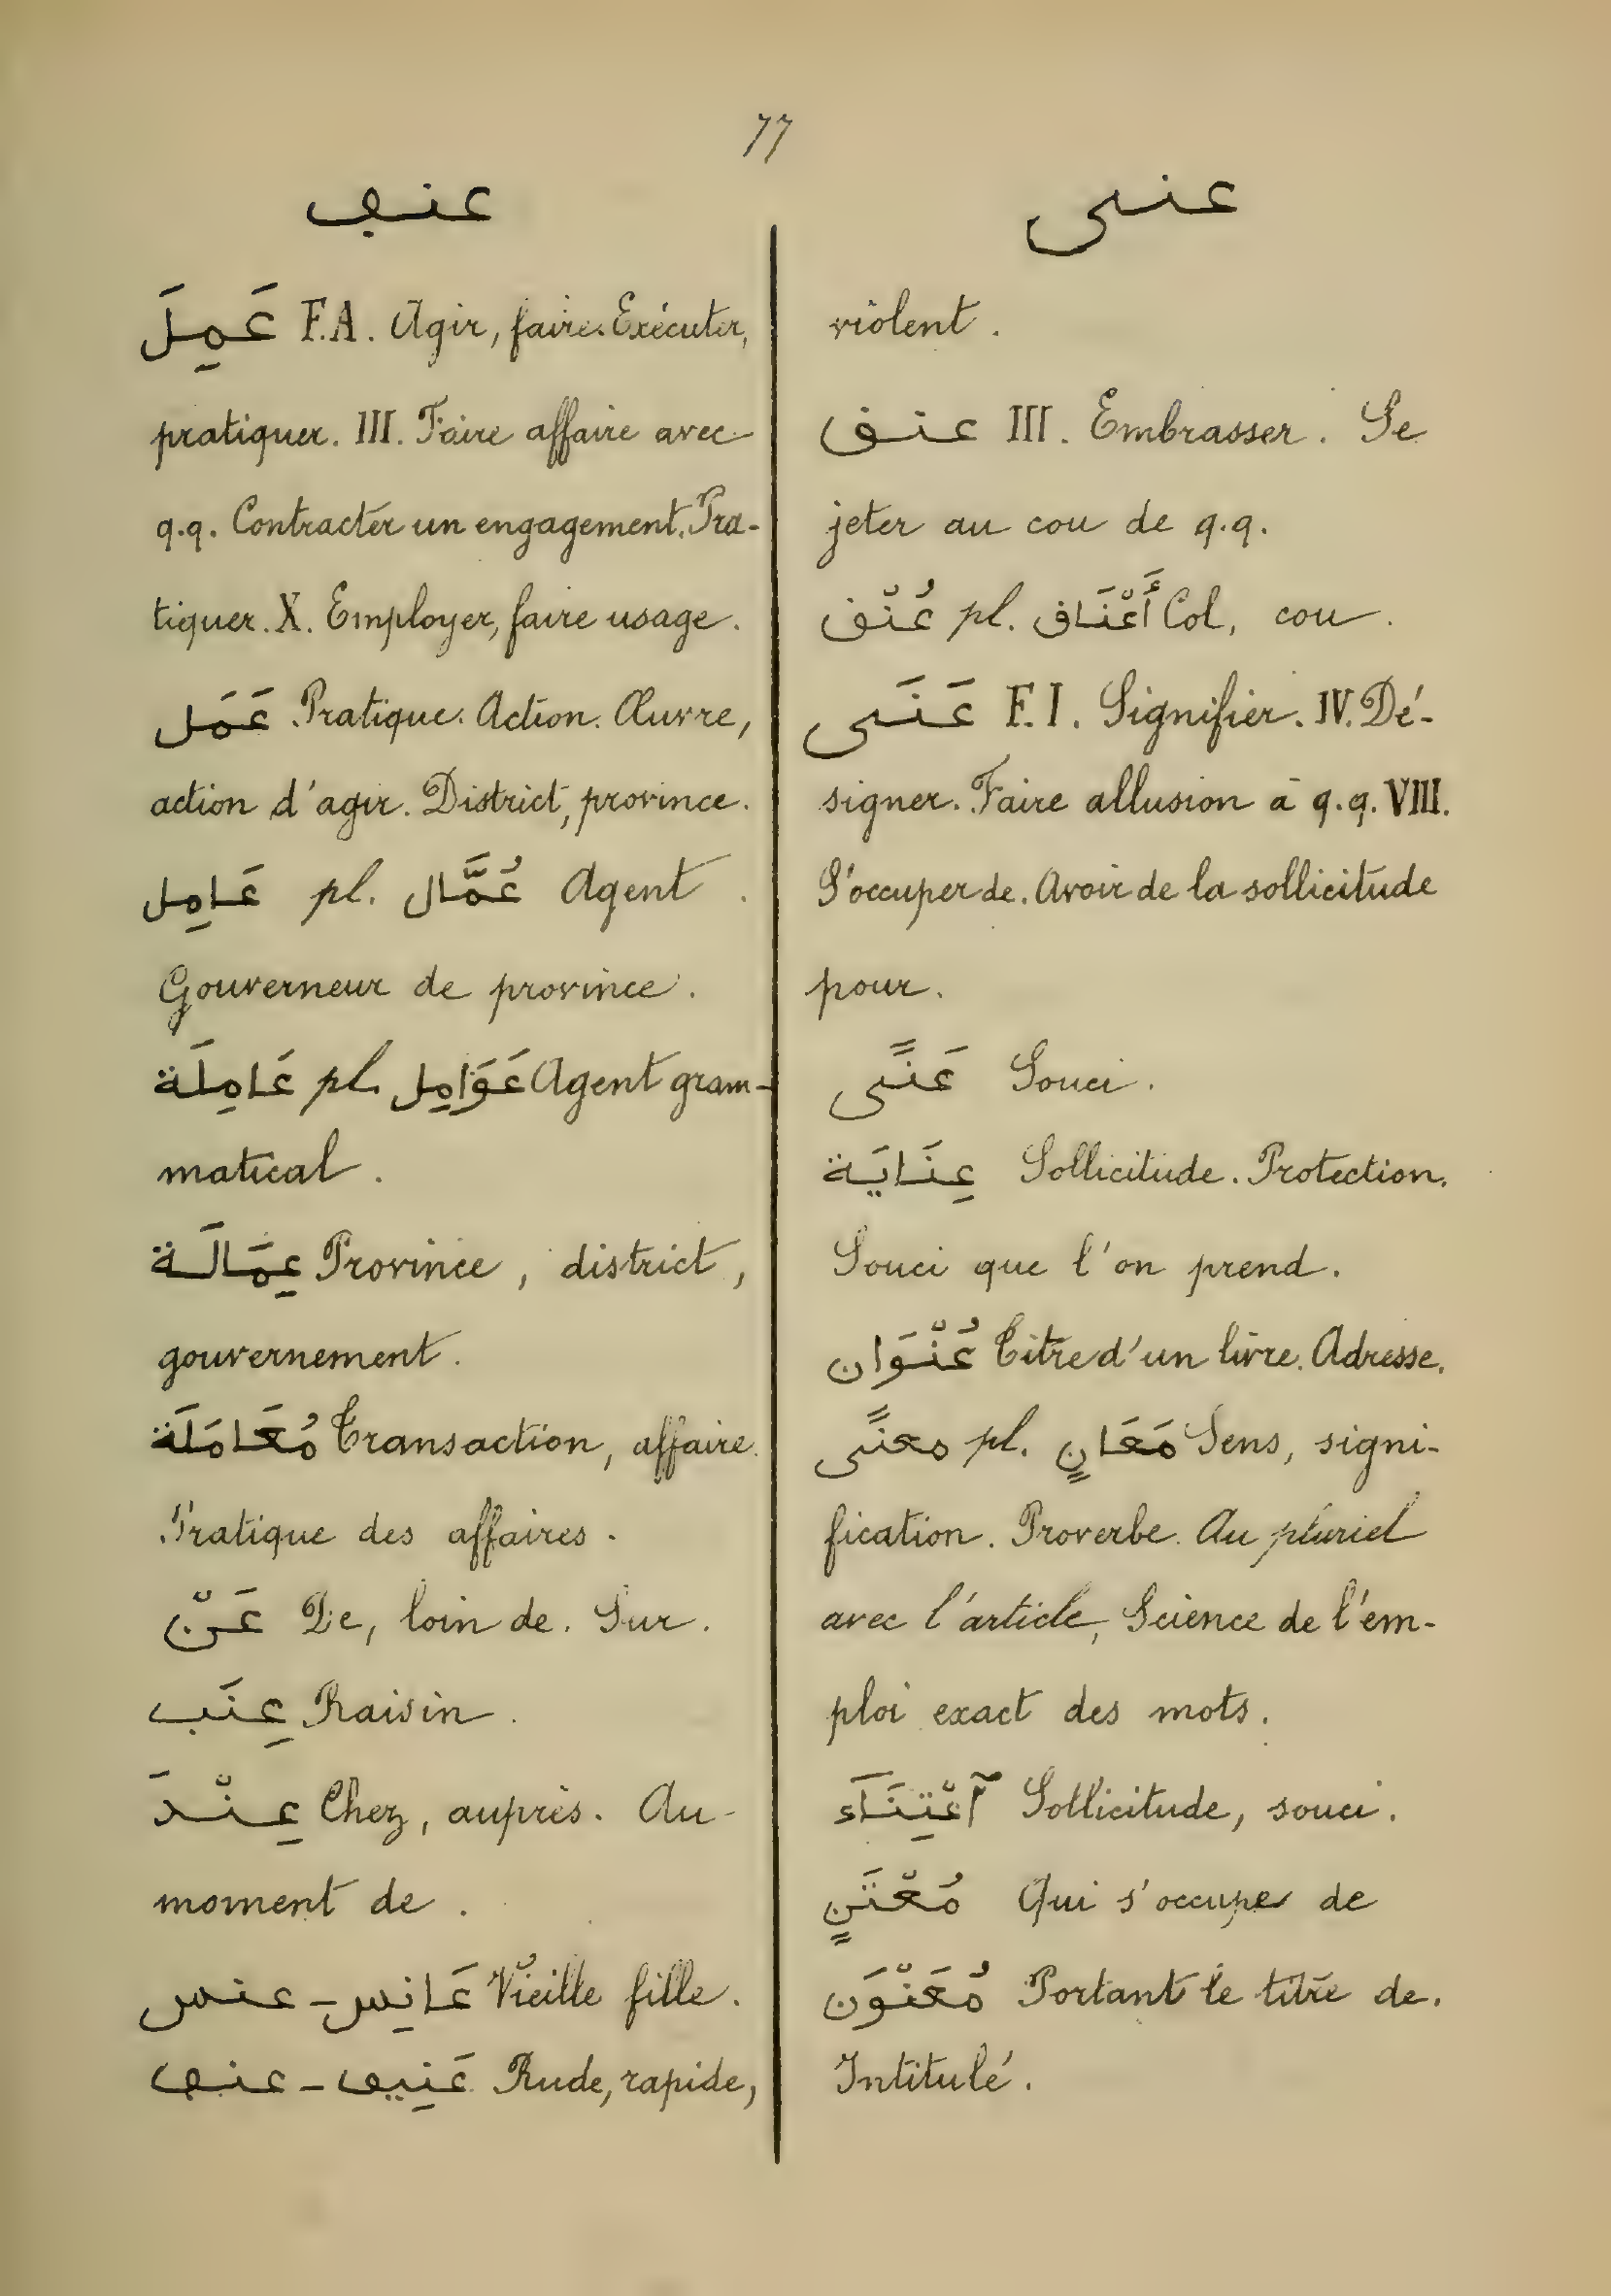 77
عنڢ
عَمِلَ F.A. Agir, faire. Exécuter,
pratiquer. III. Faire affaire avec
q.q. Contracter un engagement. Pra-
tiquer. X. Employer, faire usage.
عَمَل Pratique. Action. Œuvre,
action d'agir. District, province.
عَامِل pl. عُمَّال Agent.
Gouverneur de province.
عَامِلَة pl. عَوَامِل Agent gram-
matical.
عِمَالَة Province, district,
gouvernement.
مُعَامَلَة Transaction, affaire.
Pratique des affaires.
عَنْ De, loin de. Sur.
عِنَب Raisin.
عِنْدَ Chez, auprès. Au
moment de.
عنس - عَانِس Vieille fille.
عنڢ - عَنِيڢ Rude, rapide,
عنى
violent.
عنڧ III. Embrasser. Se
jeter au cou de q.q.
عُنْڧ pl. أَعْنَاڧ Col, cou.
عَنَى F.I. Signifier. IV. Dé-
signer. Faire allusion à q.q. VIII.
S'occuper de. Avoir de la sollicitude
pour.
عَنًى Souci.
عِنَايَة Sollicitude. Protection.
Souci que l'on prend.
عُنْوَان Titre d'un livre. Adresse.
معنًى pl. مَعَانٍ Sens, signi-
fication. Proverbe. Au pluriel
avec l'article, Science de l'em-
ploi exact des mots.
آعْتِنَآء Sollicitude, souci.
مُعْتَنٍ Qui s'occupe de
مُعَنْوَن Portant le titre de.
Intitulé.